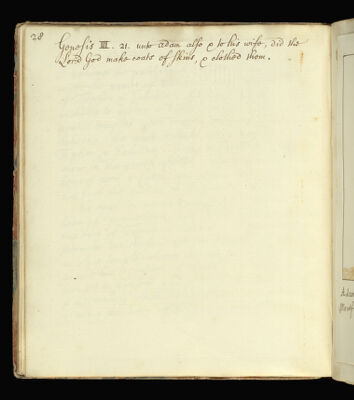 28
Genesis III. 21. unto adam also & to his wife, did the
Lord God make coats of skins, & clothed them.